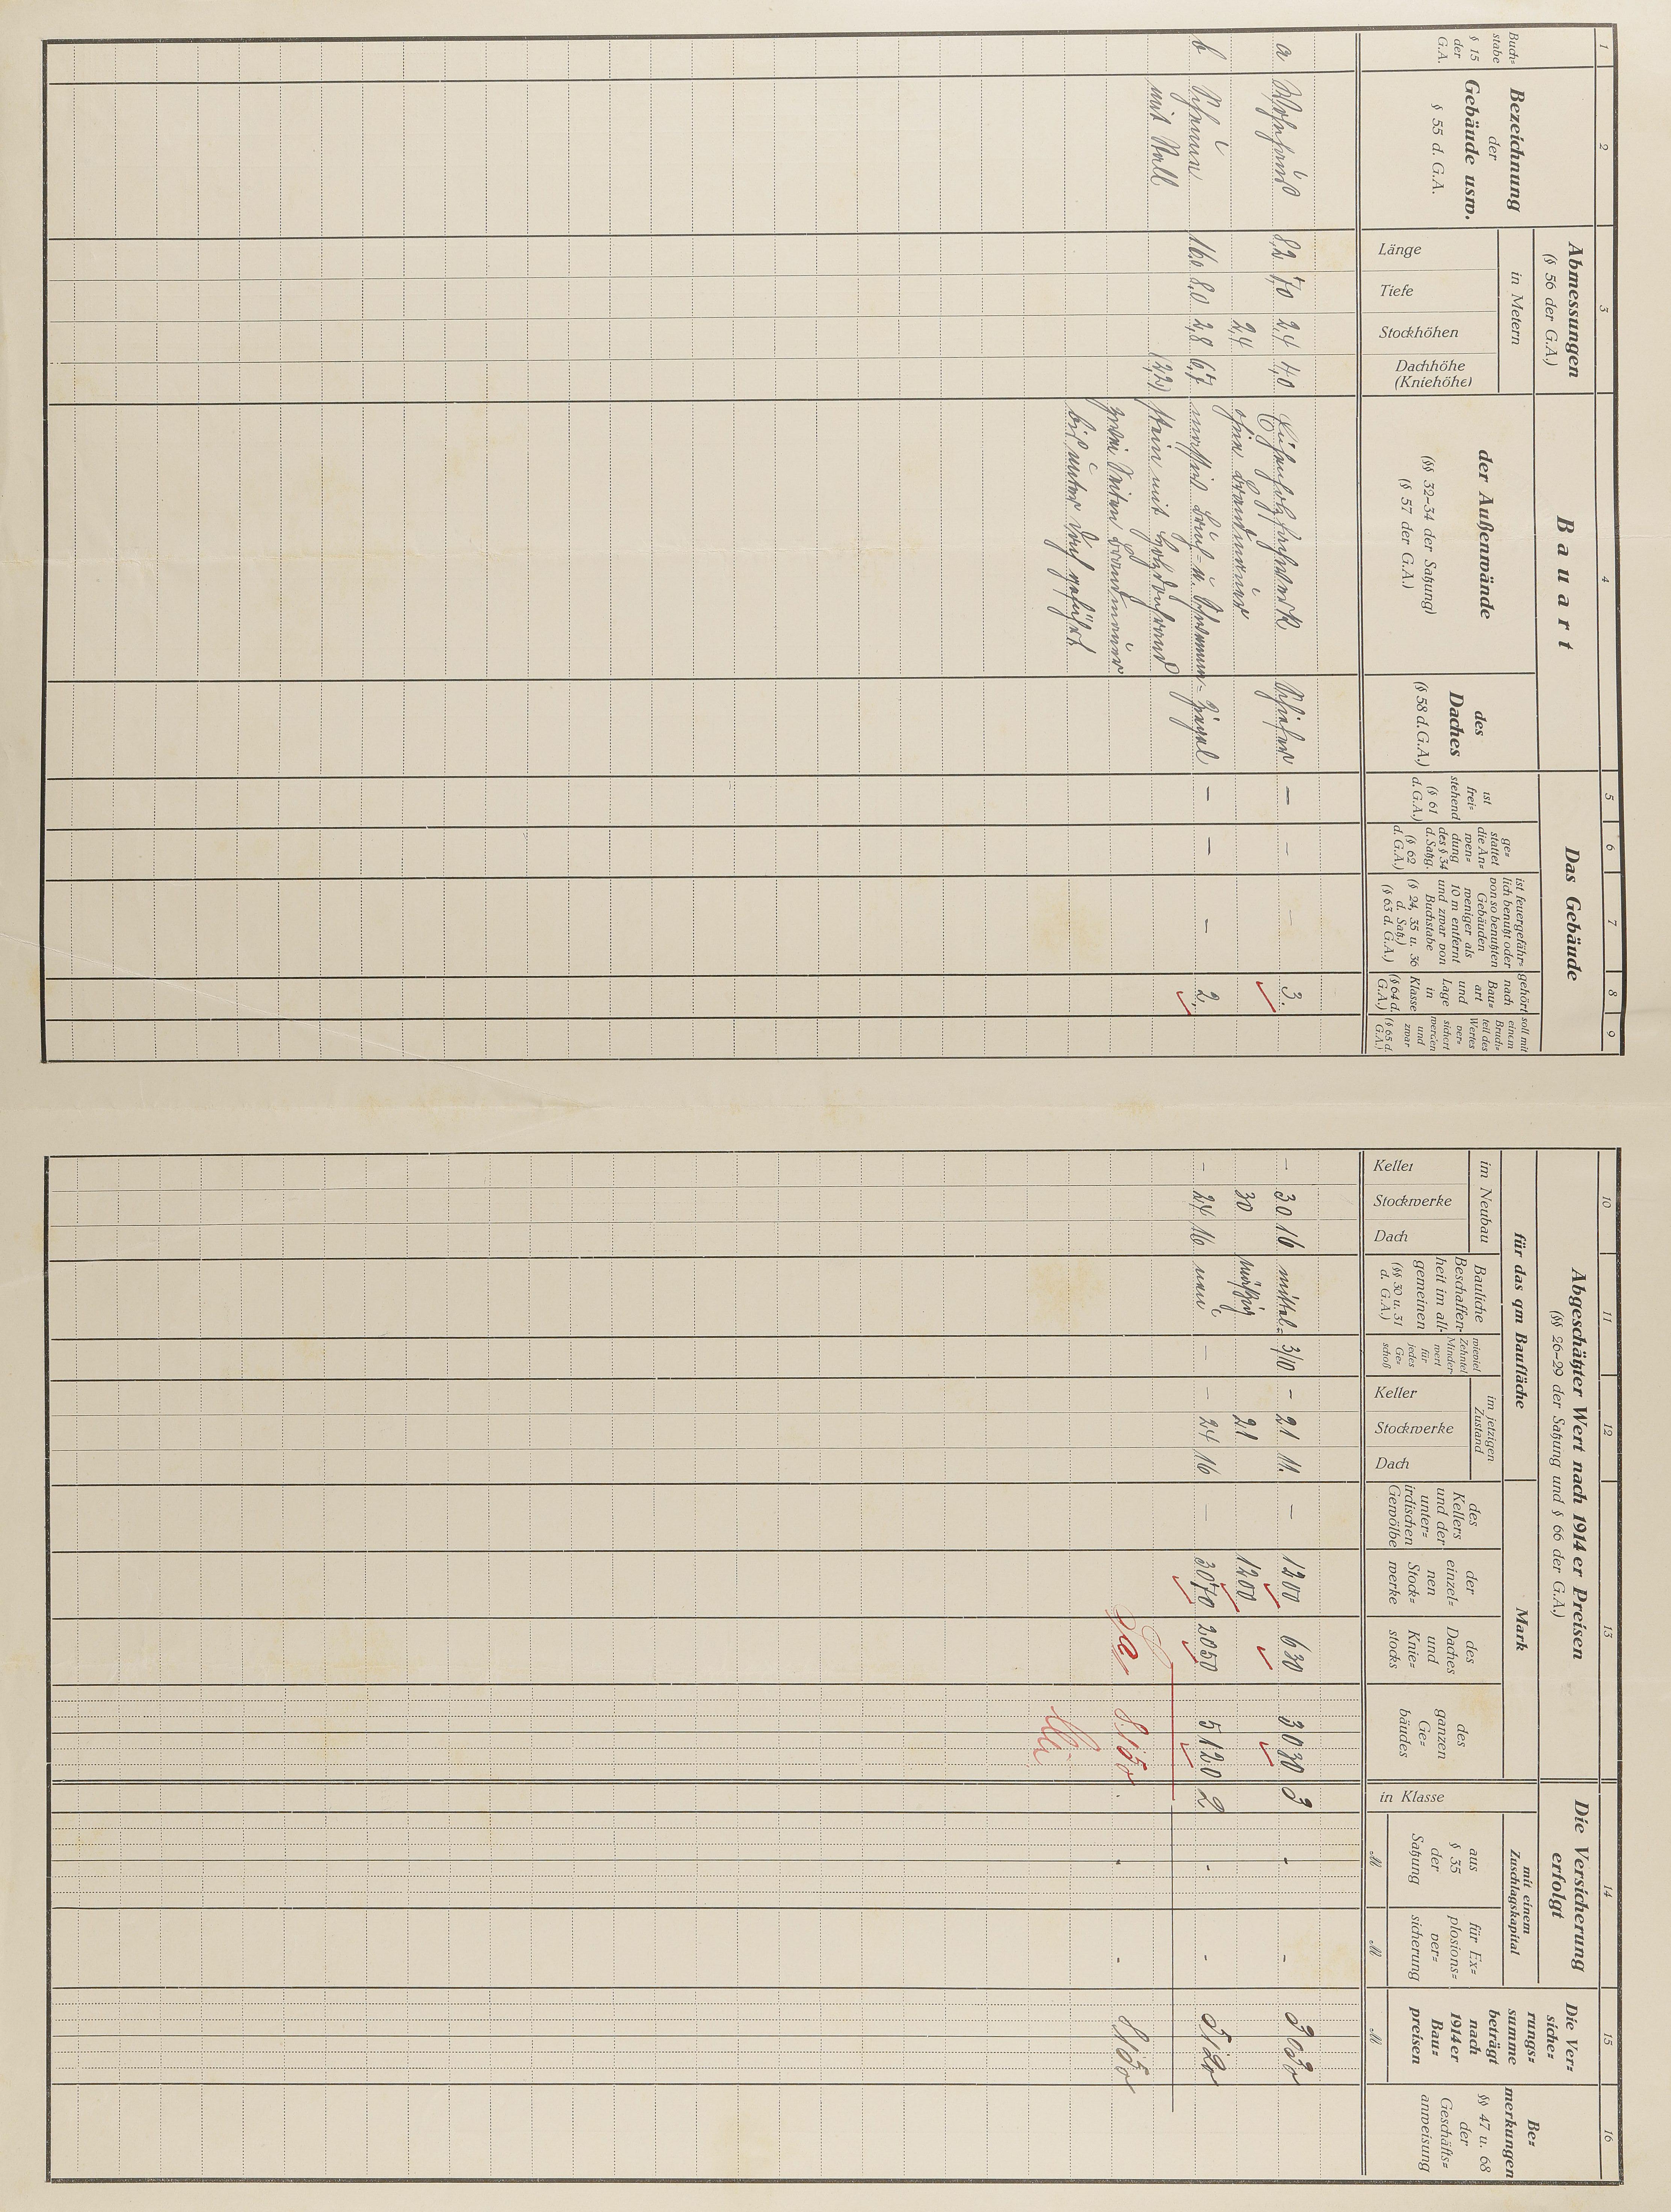 1
Buch=
stabe
§ 15
der
G.A.
2
Bezeichnung
der
Gebäude usw.
§ 55 d. G.A.
3
Abmessungen
(§ 56 der G.A.)
in Metern
Länge
Tiefe
Stockhöhen
Dachhöhe
(Kniehöhe)
4
Bauart
der Außenwände
(§§ 32-34 der Satzung)
(§ 57 der G.A.)
des
Daches
(§ 58 d. G.A.)
Das Gebäude
5
ist
frei=
stehend
(§ 61
d. G.A.)
6
ge=
stattet
die An=
wen=
dung
des § 34
d. Satzg.
(§ 62
d. G.A.)
7
ist feuergefähr=
lich benutzt oder
von so benutzten
Gebäuden
weniger als
10 m entfernt
und zwar von
Buchstabe
(§ 24, 35 u. 36
d. Satz.)
(§ 63 d. G.A.)
8
gehört
nach
Bau=
art
und
Lage
in
Klasse
(§ 64 d.
G.A.)
9
soll mit
einem
Bruch=
teil des
Wertes
ver=
sichert
werden
und
zwar
(§ 65 d.
G.A.)
a Wohnhaus 8,2 7,0 2,4 4,0 Eichenholzfachwerk Schiefer — — — 3.
2,4 ohne Brandmauer
b Scheune 16,0 8,0 2,8 6,7 massiv Bruch= u. Schwemm= Ziegel — — — 2.
mit Stall (2,2) stein mit
zwei Seiten Brandmauer
bis unter Dach geführt
10
Abgeschätzter Wert nach 1914 er Preisen
(§§ 26-29 der Satzung und § 66 der G.A.)
für das qm Baufläche
im Neubau
Keller
Stockwerke
Dach
11
Bauliche
Beschaffen=
heit im all=
gemeinen
(§§ 30 u. 31
d. G.A.)
wieviel
Zehntel
Minder=
wert
für
jedes
Ge=
schoß
12
im jetzigen
Zustand
Keller
Stockwerke
Dach
13
Mark
des
Kellers
und der
unter=
irdischen
Gewölbe
der
einzel=
nen
Stock=
werke
des
Daches
und
Knie=
stocks
des
ganzen
Ge=
bäudes
14
Die Versicherung
erfolgt
in Klasse
mit einem
Zuschlagskapital
aus
§ 35
der
Satzung
M
für Ex=
plosions=
ver=
sicherung
M
15
Die Ver=
siche=
rungs=
summe
beträgt
nach
1914 er
Bau=
preisen
M
16
Be=
merkungen
§§ 47 u. 68
der
Geschäfts=
anweisung
– 30 16 mittel= 3/10 – 21 11. – 1200 630 3030 3 - - 3030
30 mäßig 21 1200
– 24 16 neu – – 24 16 – 3070 2050 5120 2 - - 5120
8150. - - 8150